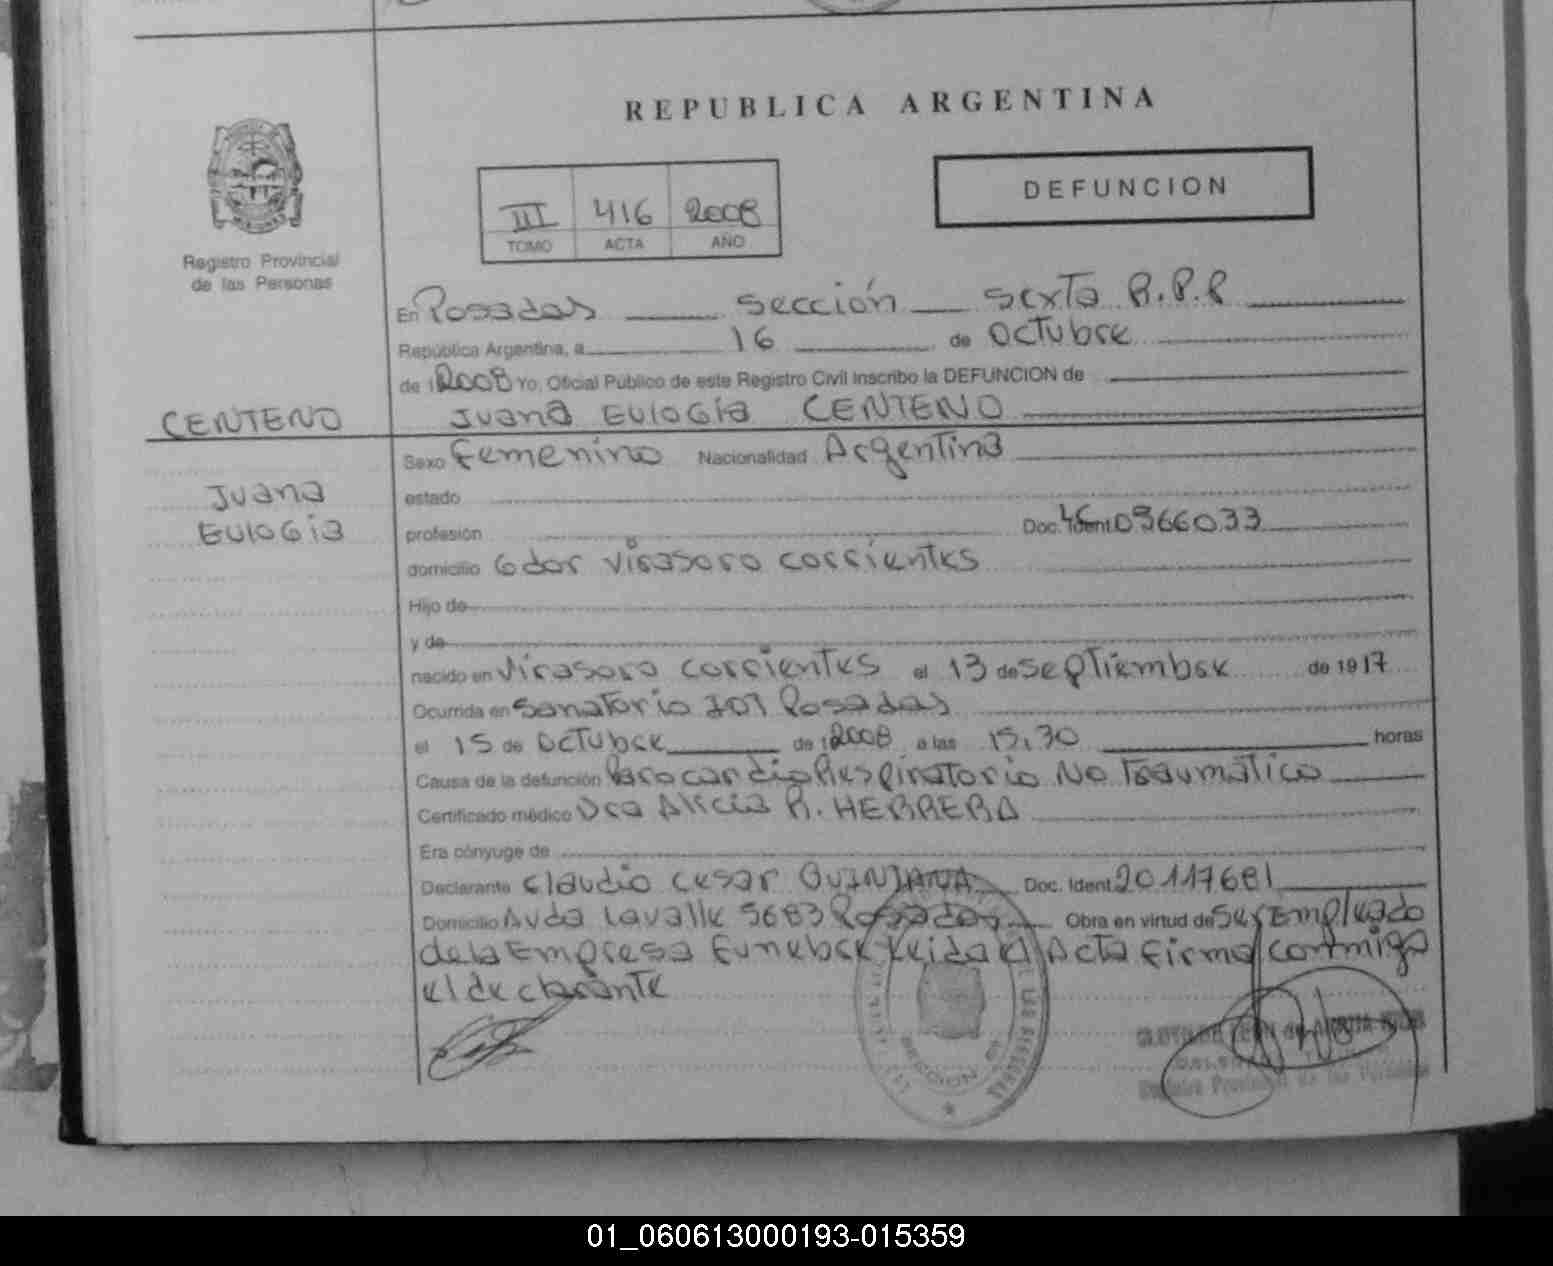 REPUBLICA ARGENTINA
DEFUNCION
III 416 2008
TOMO ACTA AÑO
Registro Provincial
de las Personas
En Posadas sección sexta R.P.P
República Argentina, a 16 de octubre
de 12008 Yo, Oficial Público de este Registro Civil Inscribo la DEFUNCION de
CENTENO Juana Eulogia CENTENO
Sexo femenino Nacionalidad Argentina
Juana estado
Eulogia profesión Doc. Ident. LC 0966033
domicilio Gdor Virasoro corrientes
Hijo de
y de
nacido en Virasoro corrientes el 13 de septiembre de 1917
Ocurrida en Sanatorio IOT Posadas
el 15 de octubre de 12008 a las 15,30 horas
Causa de la defunción Parocardio Respiratorio No Traumatico
Certificado médico Dra Alicia R. HERRERA
Era cónyuge de
Declarante Claudio Cesar QUINTANA Doc. Ident. 20117681
Domicilio Avda Lavalle 5683 Posadas Obra en virtud de Ser Empleado
de la Empresa funebre Leida el Acta firma conmigo
el declarante
SECCION 6ta
Provincial de las Personas
01_060613000193-015359